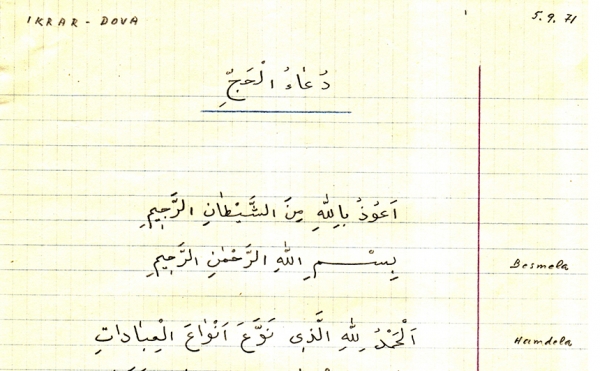 IKRAR - DOVA
5.9.71
دُعَاءُ الْحَجِّ
اَعُوذُ بِاللّٰهِ مِنَ الشَّيْطَانِ الرَّجِيمِ
بِسْمِ اللّٰهِ الرَّحْمٰنِ الرَّحِيمِ
Besmela
اَلْحَمْدُ لِلّٰهِ الَّذِى نَوَّعَ اَنْوَاعَ الْعِبَادَاتِ
Hamdela